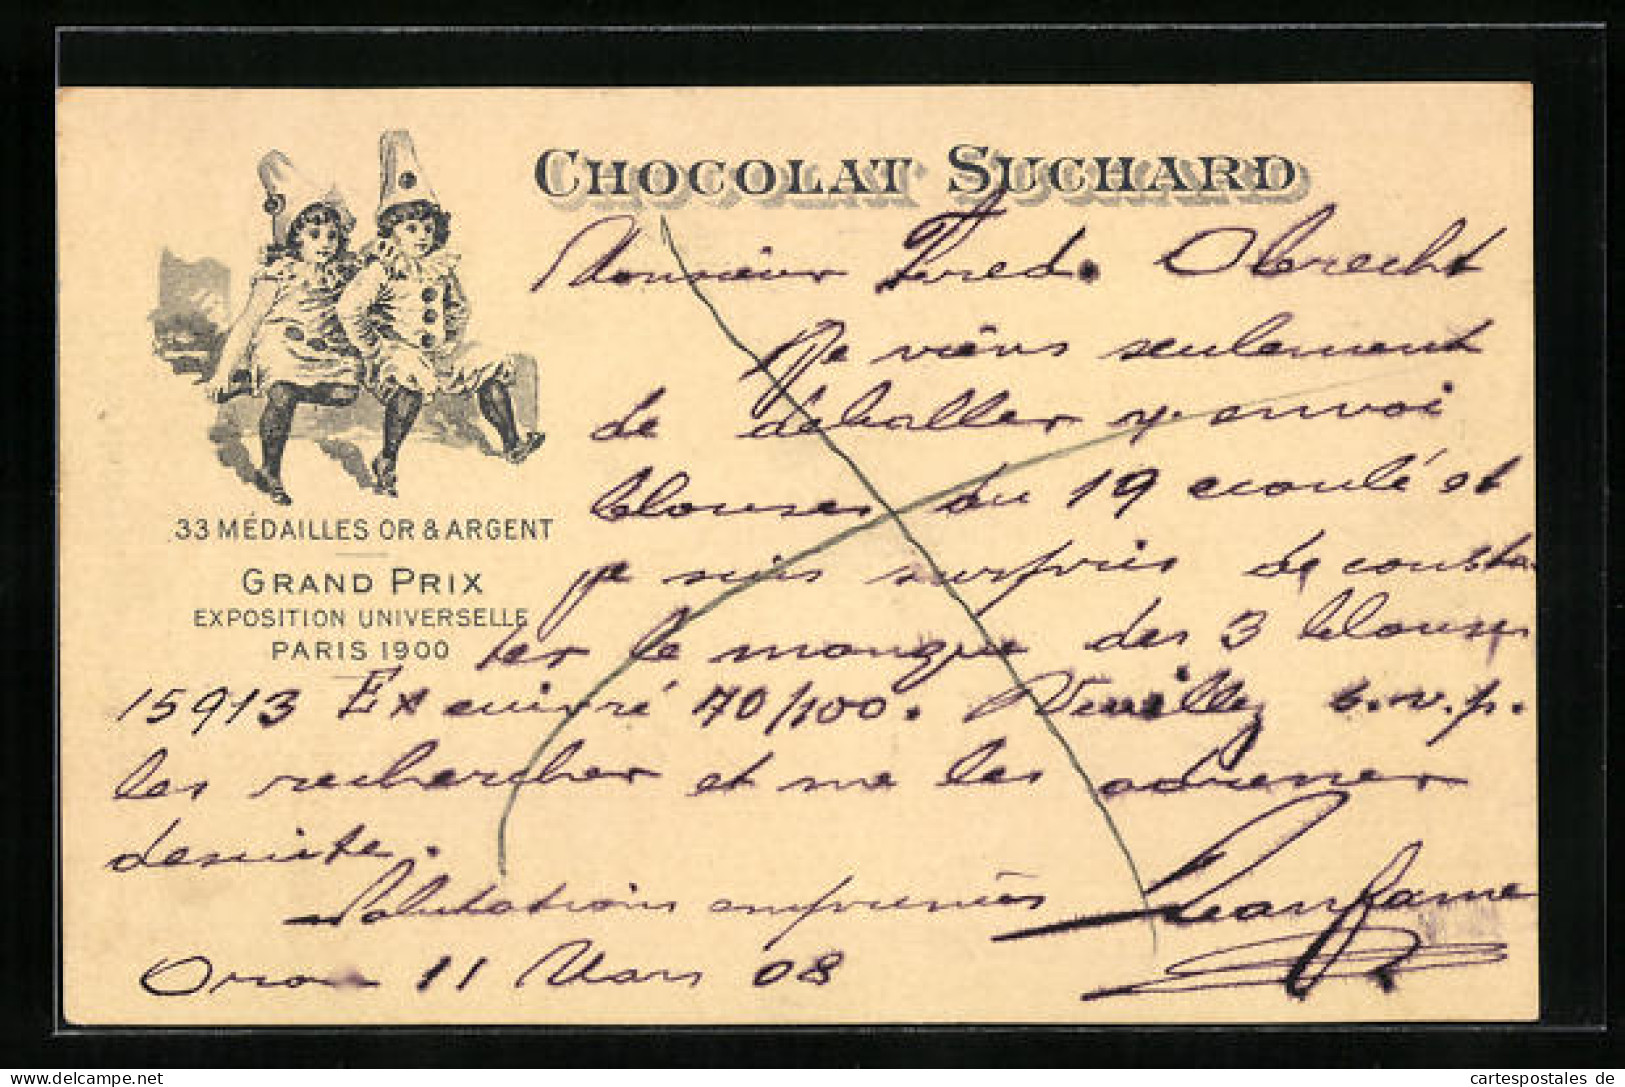 CHOCOLAT SUCHARD
33 MÉDAILLES OR & ARGENT
GRAND PRIX
EXPOSITION UNIVERSELLE
PARIS 1900
Monsieur Fred. Obrecht
Je viens seulement
de deballer votre envoi
blouses du 19 ecoulé et
je suis surpris de consta
ter le manque des 3 blouses
15913 Ex cuivré 70/100. Veuillez s.v.p.
les rechercher et me les adresser
desuite.
Salutations empressées
Oron 11 Mars 08
hip-post.com
cartespostales de